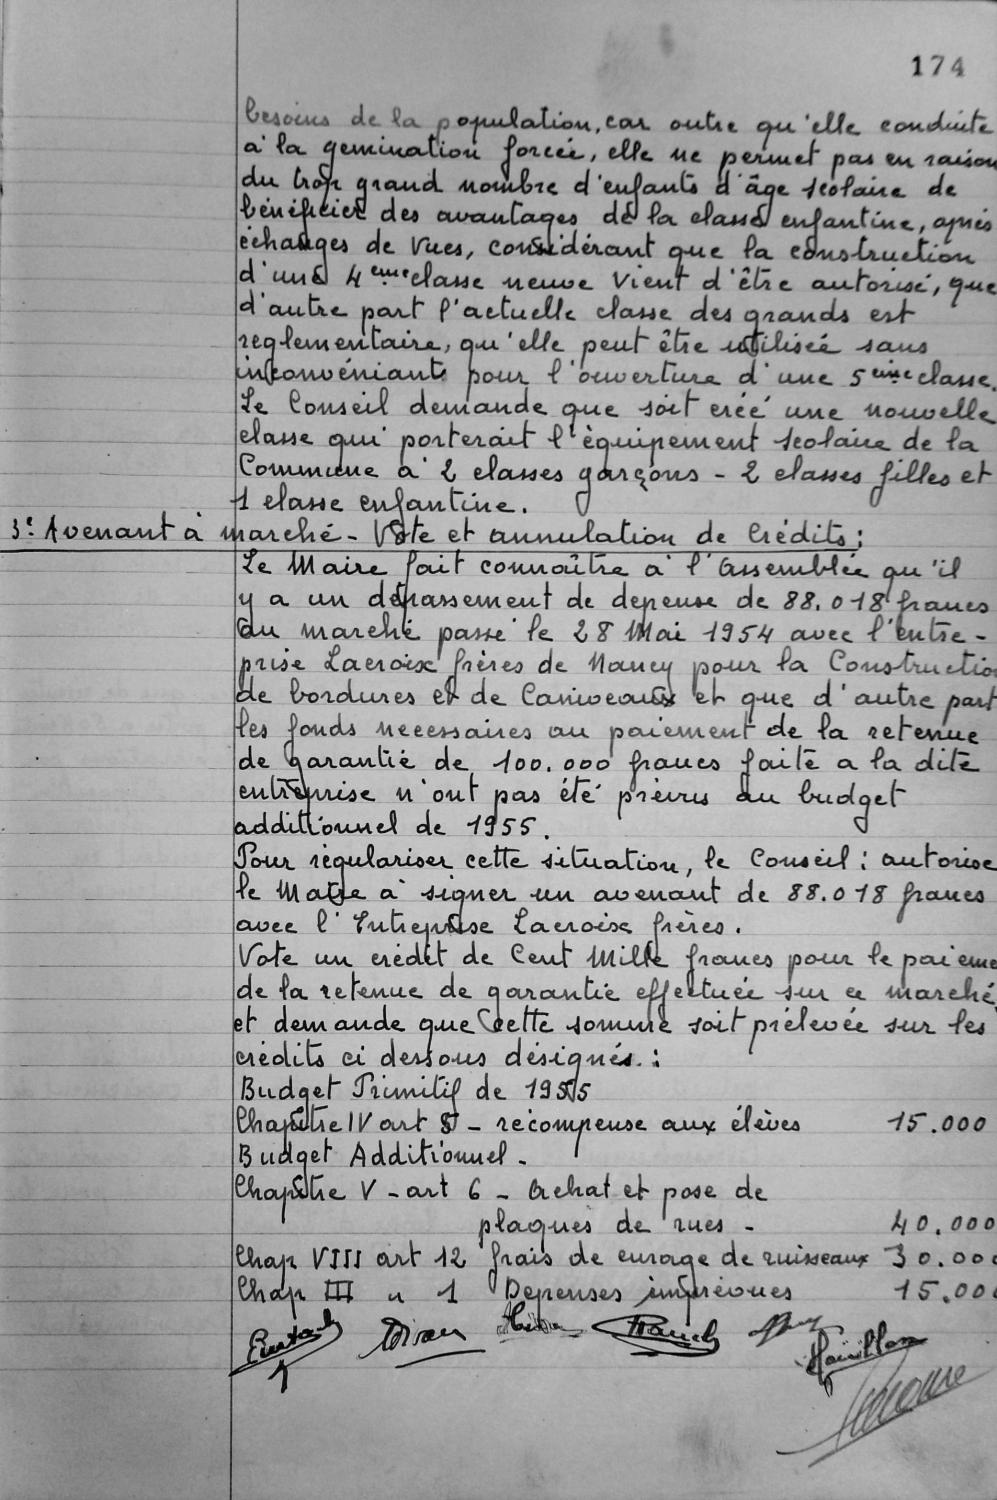 174
besoins de la population, car outre qu'elle conduite
à la gemination forcée, elle ne permet pas en raison
du trop grand nombre d'enfants d'âge scolaire de
bénéficier des avantages de la classe enfantine, après
échanges de vues, considérant que la construction
d'une 4eme classe neuve vient d'être autorisé, que
d'autre part l'actuelle classe des grands est
reglementaire, qu'elle peut être utilisée sans
inconvéniants pour l'ouverture d'une 5eme classe.
Le Conseil demande que soit créé une nouvelle
classe qui porterait l'équipement scolaire de la
Commune à 2 classes garçons - 2 classes filles et
1 classe enfantine.
3º Avenant à marché - Vote et annulation de Crédits :
Le Maire fait connaître à l'Assemblée qu'il
y a un dépassement de depense de 88.018 francs
du marché passé le 28 Mai 1954 avec l'entre-
prise Lacroix frères de Nancy pour la Constructio
de bordures et de Caniveaux et que d'autre part
les fonds necessaires au paiement de la retenue
de garantie de 100.000 francs faite a la dite
entreprise n'ont pas été prévus au budget
additionnel de 1955.
Pour régulariser cette situation, le Conseil : autorise
le Maire à signer un avenant de 88.018 francs
avec l'Entreprise Lacroix frères.
Vote un crédit de Cent Mille francs pour le paieme
de la retenue de garantie effectuée sur ce marché
et demande que cette somme soit prélevée sur les
crédits ci dessous désignés. :
Budget Primitif de 1955
Chapître IV art 8 - récompense aux élèves 15.000
Budget Additionnel -
Chapître V - art 6 - Achat et pose de
plaques de rues - 40.000
Chap VIII art 12 frais de curage de ruisseaux 30.000
Chap III " 1 Depenses imprévues 15.000